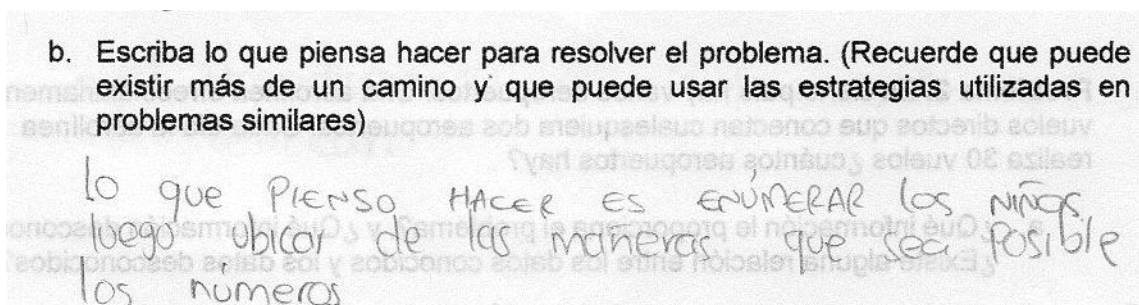 b. Escriba lo que piensa hacer para resolver el problema. (Recuerde que puede
existir más de un camino y que puede usar las estrategias utilizadas en
problemas similares)
lo que PIENSO HACER ES ENÚMERAR los NIÑOS
luego ubicar de las maneras que sea Posible
los números